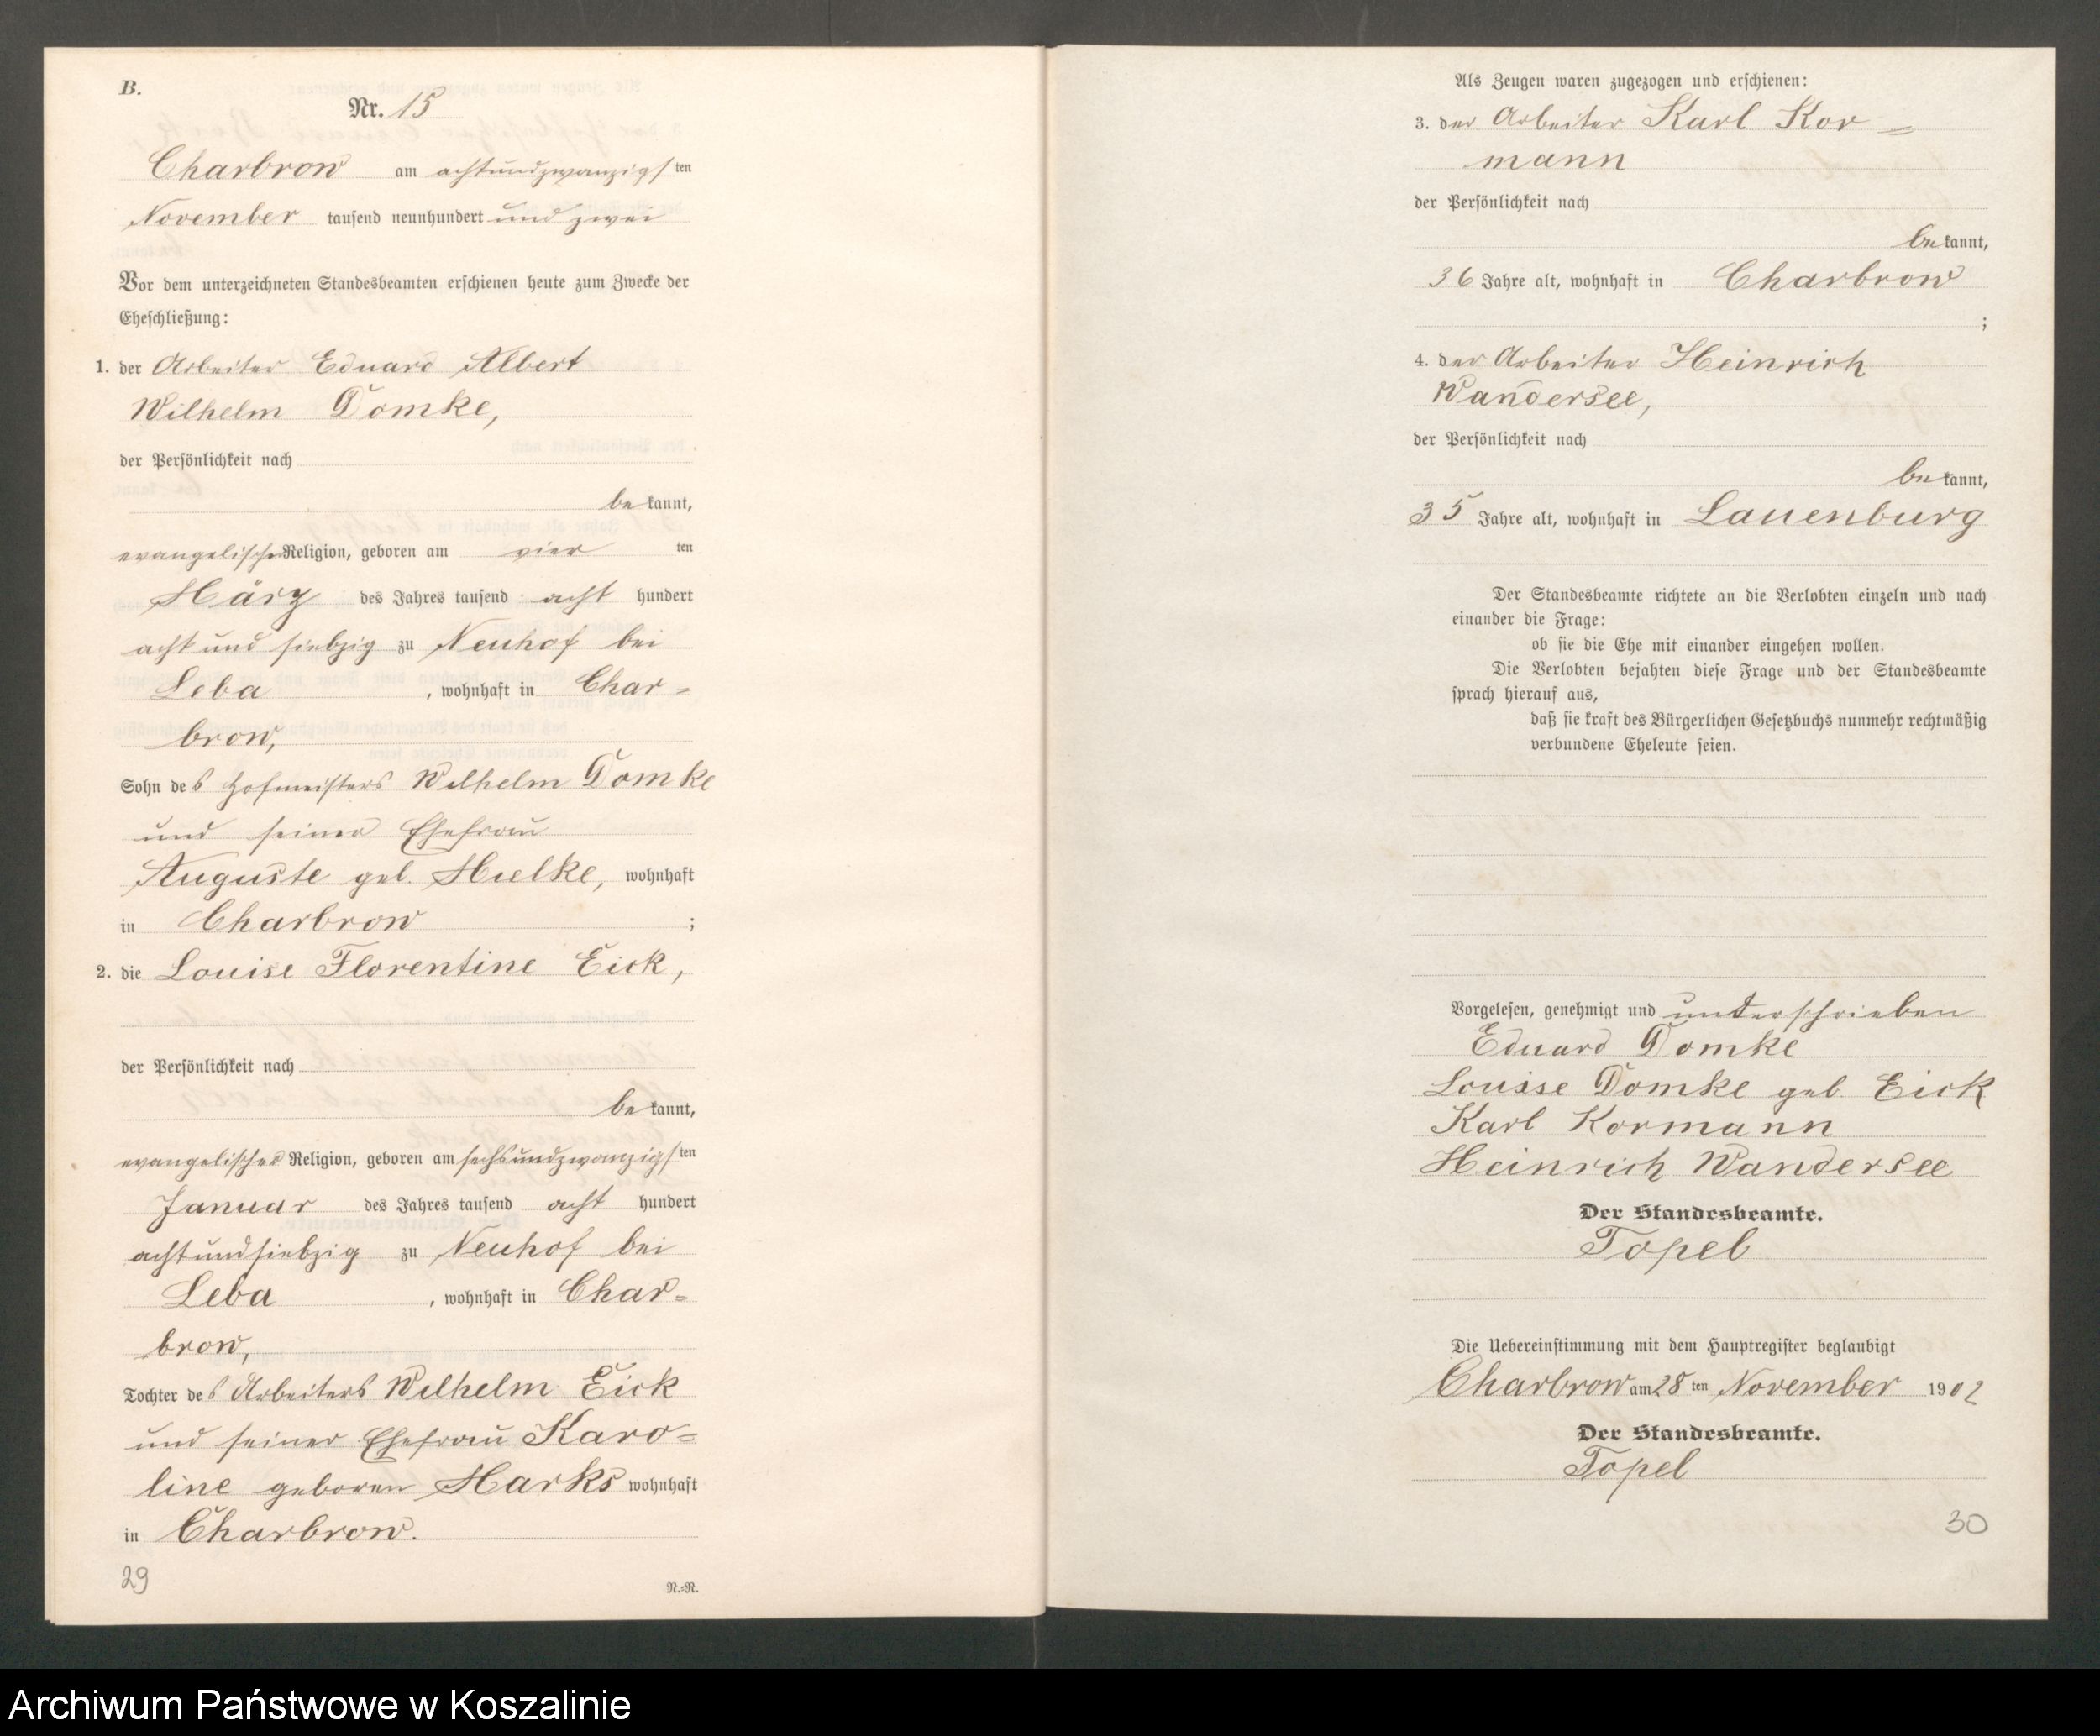 B.
Nr. 15
Charbrow am achtundzwanzigsten
November tausend neunhundert und zwei
Vor dem unterzeichneten Standesbeamten erschienen heute zum Zwecke der
Eheschließung:
1. der Arbeiter Eduard Albert
Wilhelm Domke,
der Persönlichkeit nach
bekannt,
evangelischer Religion, geboren am vierten
März des Jahres tausend acht hundert
acht und siebzig zu Neuhof bei
Leba, wohnhaft in Char=
brow,
Sohn des Hofmeisters Wilhelm Domke
und seiner Ehefrau
Auguste geb. Mielke, wohnhaft
in Charbrow;
2. die Louise Florentine Eick,
der Persönlichkeit nach
bekannt,
evangelischer Religion, geboren am sechsundzwanzigsten
Januar des Jahres tausend acht hundert
achtundsiebzig zu Neuhof bei
Leba, wohnhaft in Char=
brow,
Tochter des Arbeiters Wilhelm Eick
und seiner Ehefrau Karo=
line geboren Harks wohnhaft
in Charbrow.
29
N.=R.
Als Zeugen waren zugezogen und erschienen:
3. der Arbeiter Karl Kor=
mann
der Persönlichkeit nach
bekannt,
36 Jahre alt, wohnhaft in Charbrow
;
4. der Arbeiter Heinrich
Wandersee,
der Persönlichkeit nach
bekannt,
35 Jahre alt, wohnhaft in Lauenburg
Der Standesbeamte richtete an die Verlobten einzeln und nach
einander die Frage:
ob sie die Ehe mit einander eingehen wollen.
Die Verlobten bejahten diese Frage und der Standesbeamte
sprach hierauf aus,
daß sie kraft des Bürgerlichen Gesetzbuchs nunmehr rechtmäßig
verbundene Eheleute seien.
Vorgelesen, genehmigt und unterschrieben
Eduard Domke
Louise Domke geb. Eick
Karl Kormann
Heinrich Wandersee
Der Standesbeamte.
Topel
Die Uebereinstimmung mit dem Hauptregister beglaubigt
Charbrow am 28ten November 1902
Der Standesbeamte.
Topel
30
Archiwum Państwowe w Koszalinie